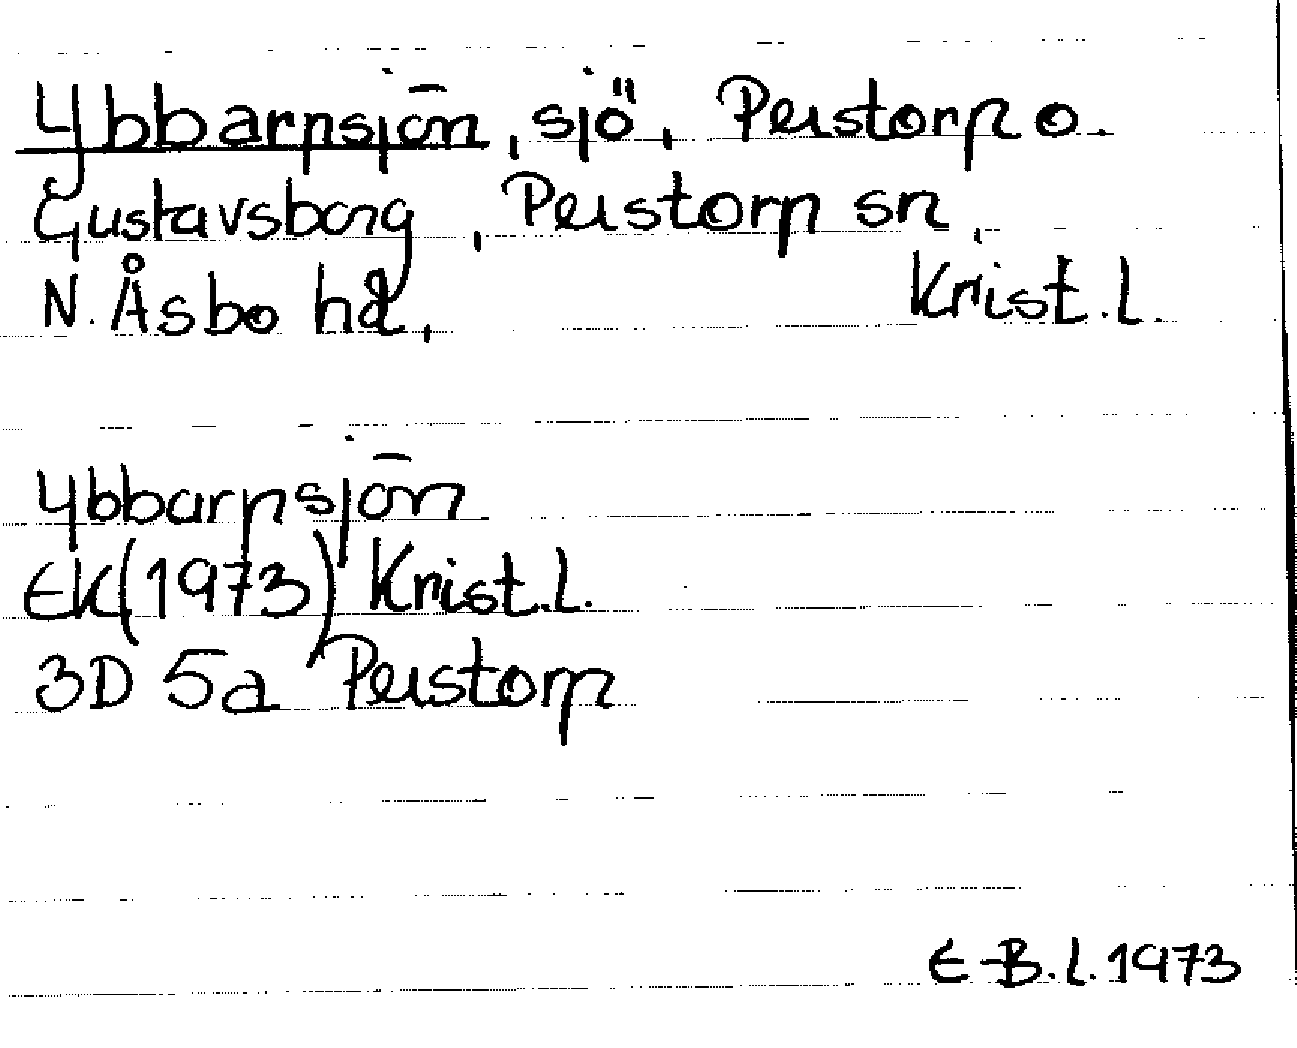 Ybbarpsjön, sjö, Perstorp o.
Gustavsborg, Perstorp sn,
N. Åsbo hd, Krist. l.
Ybbarpsjön
EK (1973) Krist. l.
3D 5a Perstorp
E-B. L. 1973